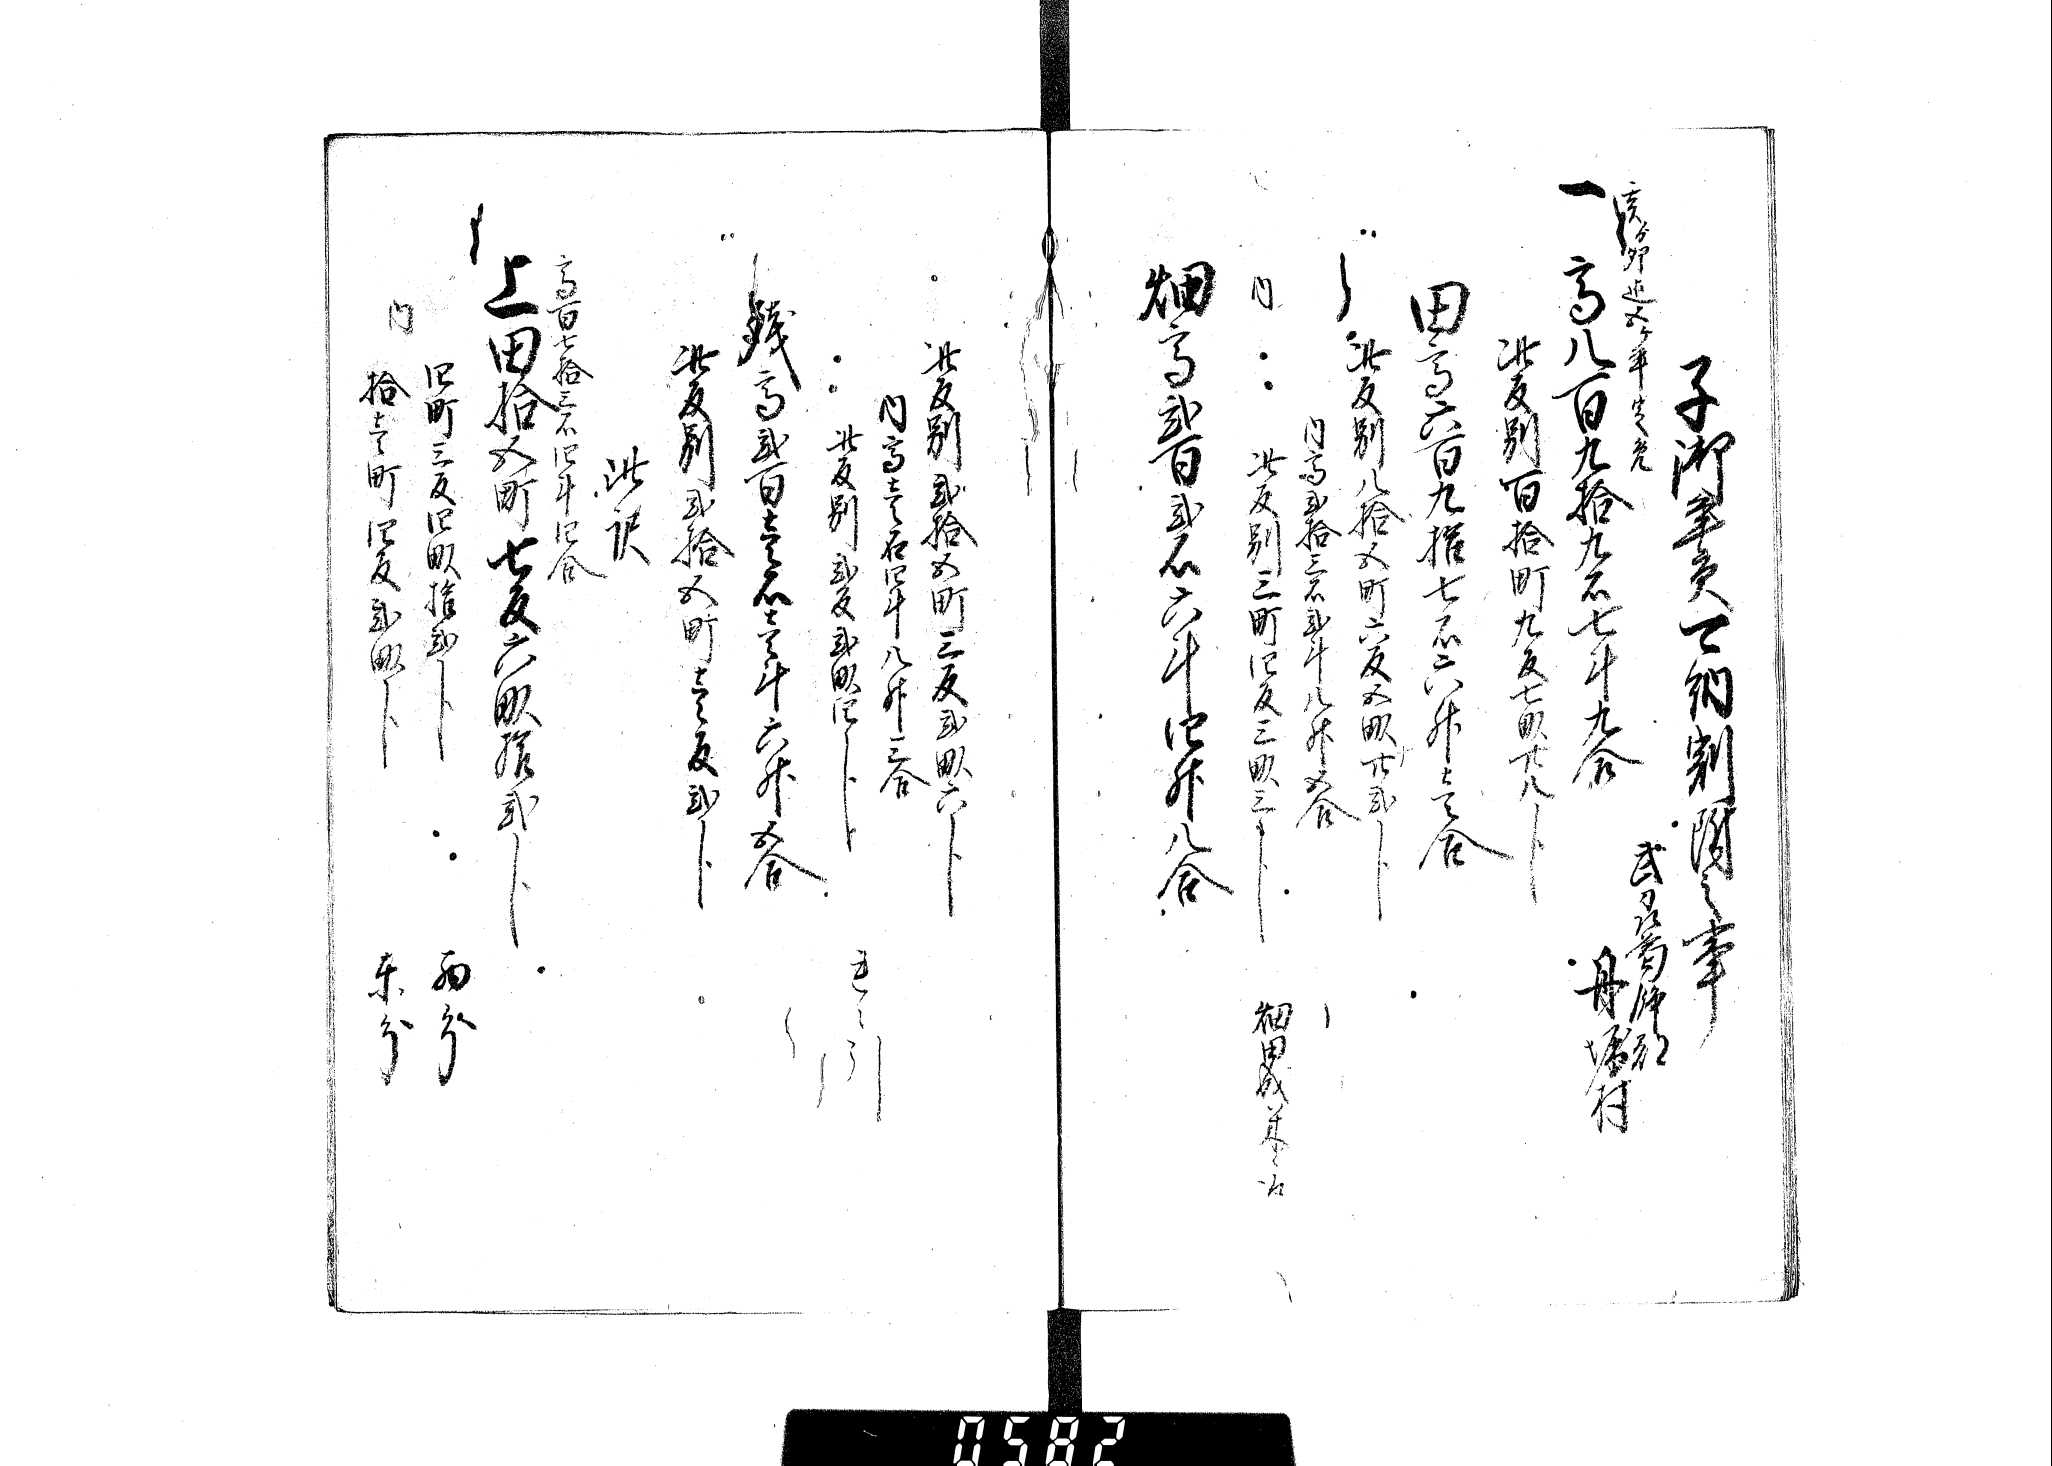 子御年貢可納割附之事
武刕葛飾郡
丹後村
亥ゟ卯迄五ケ年定免
一 高八百九拾九石七斗九合
此反別百拾町九反七畝廿八卜
田高六百九拾七石六升壱合
此反別八拾五町六反五畝廿弐卜
内高弐拾三石弐斗八升五合
内 此反別三町四反三畝三卜 畑田成
畑高弐百弐石六斗四升八合
此反別弐拾五町三反弐畝六卜
内高壱石四斗八升三合
此反別弐反弐畝四卜 引
残高弐百壱石壱斗六升五合
此反別弐拾五町壱反弐卜
此訳
高百七拾三石四斗四合
上田拾五町七反六畝拾弐卜
四町三反四畝拾弐卜 西分
内 拾壱町四反弐畝卜 東分
0582